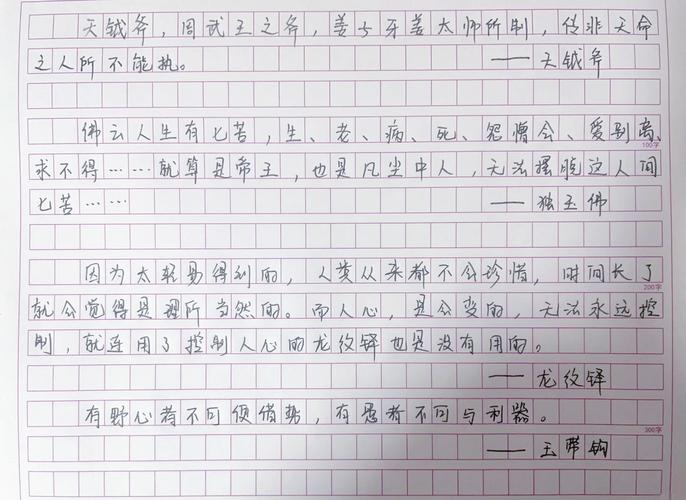 天钺斧，周武王之斧，姜子牙姜太师所制，传非天命
之人所不能执。 ——天钺斧
佛云人生有七苦，生、老、病、死、怨憎会、爱别离、
100字
求不得……就算是帝王，也是凡尘中人，无法摆脱这人间
七苦…… ——独玉佛
因为太轻易得到的，人类从来都不会珍惜，时间长了
200字
就会觉得是理所当然的。而人心，是会变的，无法永远控
制，就连用了控制人心的龙纹铎也是没有用的。
——龙纹铎
有野心者不可使借势，有愚者不可与利器。
300字
——玉带钩